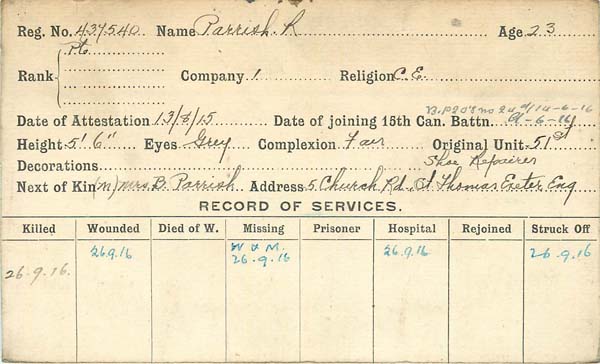 Reg. No. 437540 Name Parrish. R Age 23
Rank Pte Company 1 Religion C. E.
B.P208 no 24 d/14-6-16
Date of Attestation 13/8/15 Date of joining 15th Can. Battn. 9-6-16
Height 5' 6" Eyes Grey Complexion Fair Original Unit 51st
Decorations Shoe Repairer
Next of Kin (m) Mrs. B. Parrish Address 5 Church Rd, St Thomas Exeter Eng
RECORD OF SERVICES.
Killed Wounded Died of W. Missing Prisoner Hospital Rejoined Struck Off
26.9.16 W & M. 26.9.16 26.9.16
26.9.16. 26.9.16